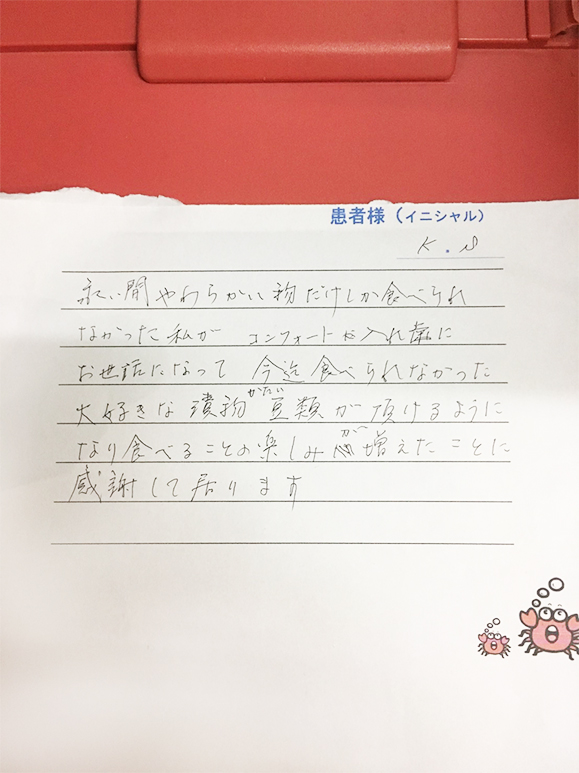 患者様（イニシャル）
K.N
永い間やわらかい物だけしか食べられ
なかった私が コンフォート 入れ歯に
お世話になって 今迄食べられなかった
大好きな漬物 かたい 豆類が頂けるように
なり食べることの楽しみが増えたことに
感謝して居ります